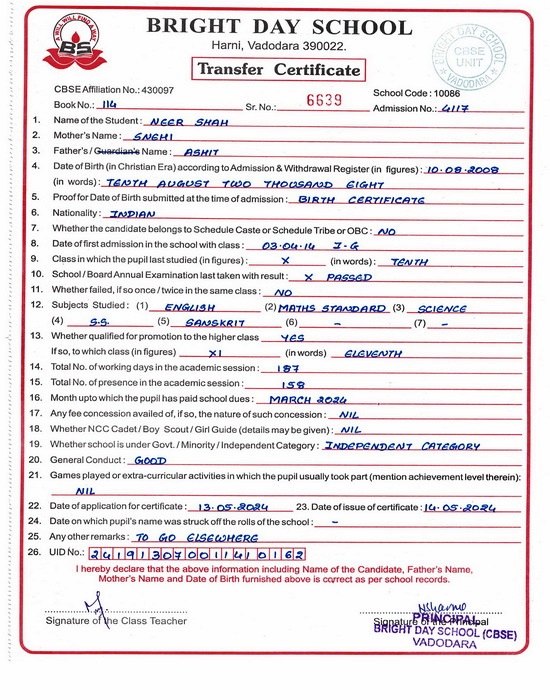 A WILL WILL FIND A WAY
BS
BRIGHT DAY SCHOOL
Harni, Vadodara 390022.
BRIGHT DAY SCHOOL
CBSE
UNIT
VADODARA
Transfer Certificate
CBSE Affiliation No.: 430097 School Code : 10086
Book No.: 114 Sr. No.: 6639 Admission No.: 4117
1. Name of the Student : NEER SHAH
2. Mother's Name : SNEHI
3. Father's / Guardian's Name : ASHIT
4. Date of Birth (in Christian Era) according to Admission & Withdrawal Register (in figures) : 10.08.2008
(in words) : TENTH AUGUST TWO THOUSAND EIGHT
5. Proof for Date of Birth submitted at the time of admission : BIRTH CERTIFICATE
6. Nationality : INDIAN
7. Whether the candidate belongs to Schedule Caste or Schedule Tribe or OBC : NO
8. Date of first admission in the school with class : 03.04.14 I-G
9. Class in which the pupil last studied (in figures) : X (in words) : TENTH
10. School / Board Annual Examination last taken with result : X PASSED
11. Whether failed, if so once / twice in the same class : NO
12. Subjects Studied : (1) ENGLISH (2) MATHS STANDARD (3) SCIENCE
(4) S.S. (5) SANSKRIT (6) - (7) -
13. Whether qualified for promotion to the higher class YES
If so, to which class (in figures) XI (in words) ELEVENTH
14. Total No. of working days in the academic session : 187
15. Total No. of presence in the academic session : 158
16. Month upto which the pupil has paid school dues : MARCH 2024
17. Any fee concession availed of, if so, the nature of such concession : NIL
18. Whether NCC Cadet / Boy Scout / Girl Guide (details may be given) : NIL
19. Whether school is under Govt. / Minority / Independent Category : INDEPENDENT CATEGORY
20. General Conduct : GOOD
21. Games played or extra-curricular activities in which the pupil usually took part (mention achievement level therein):
NIL
22. Date of application for certificate : 13.05.2024 23. Date of issue of certificate : 14.05.2024
24. Date on which pupil's name was struck off the rolls of the school : -
25. Any other remarks : TO GO ELSEWHERE
26. UID No.: 241913070011410162
I hereby declare that the above information including Name of the Candidate, Father's Name,
Mother's Name and Date of Birth furnished above is correct as per school records.
Signature of the Class Teacher Signature of the Principal
PRINCIPAL
BRIGHT DAY SCHOOL (CBSE)
VADODARA